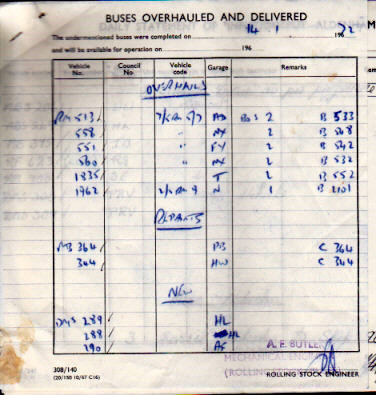 BUSES OVERHAULED AND DELIVERED
The undermentioned buses were completed on 14.1 1972
and will be available for operation on 196
Vehicle No. Council No Vehicle code Garage Remarks
OVERHAULS
RM 513 / 2/5 RM 5/7 AD BOS 2 B 533
558 / " NX 2 B 568
551 / " FY 2 B 542
560 / " NX 2 B 532
1835 / T 2 B 552
1962 / 2/5 RM 9 N 1 B 2101
REPAINTS
MB 364 / PB C 364
344 / HW C 344
NEW
DMS 289 / HL
288 / HL
290 / AF
A. F. BUTLER
MECHANICAL ENGINEER
(ROLLING STOCK
308/140
(20/150 10/67 C16)
ROLLING STOCK ENGINEER